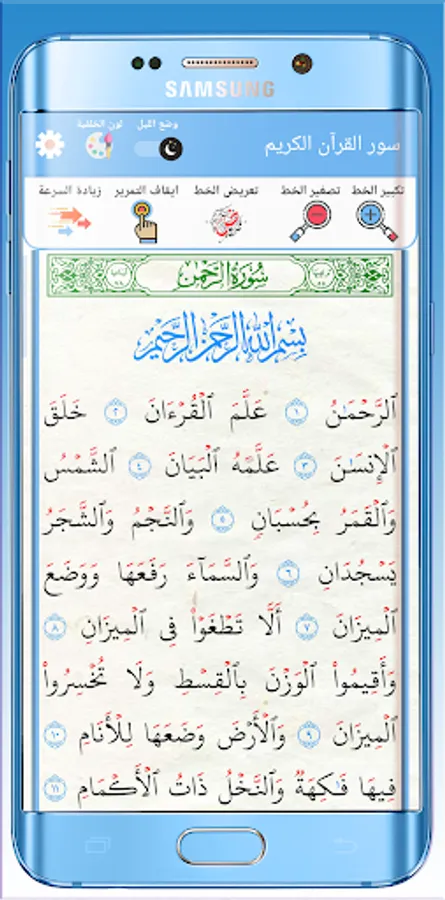 SAMSUNG
وضع الليل
لون الخلفية
سور القرآن الكريم
تكبير الخط
تصغير الخط
تعريض الخط
ايقاف التمرير
زيادة السرعة
سُورَةُ الرَّحْمَٰن
بِسْمِ ٱللَّهِ ٱلرَّحْمَٰنِ ٱلرَّحِيمِ
ٱلرَّحْمَٰنُ ١ عَلَّمَ ٱلْقُرْءَانَ ٢ خَلَقَ
ٱلْإِنسَٰنَ ٣ عَلَّمَهُ ٱلْبَيَانَ ٤ ٱلشَّمْسُ
وَٱلْقَمَرُ بِحُسْبَانٍ ٥ وَٱلنَّجْمُ وَٱلشَّجَرُ
يَسْجُدَانِ ٦ وَٱلسَّمَآءَ رَفَعَهَا وَوَضَعَ
ٱلْمِيزَانَ ٧ أَلَّا تَطْغَوْا۟ فِى ٱلْمِيزَانِ ٨
وَأَقِيمُوا۟ ٱلْوَزْنَ بِٱلْقِسْطِ وَلَا تُخْسِرُوا۟
ٱلْمِيزَانَ ٩ وَٱلْأَرْضَ وَضَعَهَا لِلْأَنَامِ ١٠
فِيهَا فَٰكِهَةٌ وَٱلنَّخْلُ ذَاتُ ٱلْأَكْمَامِ ١١